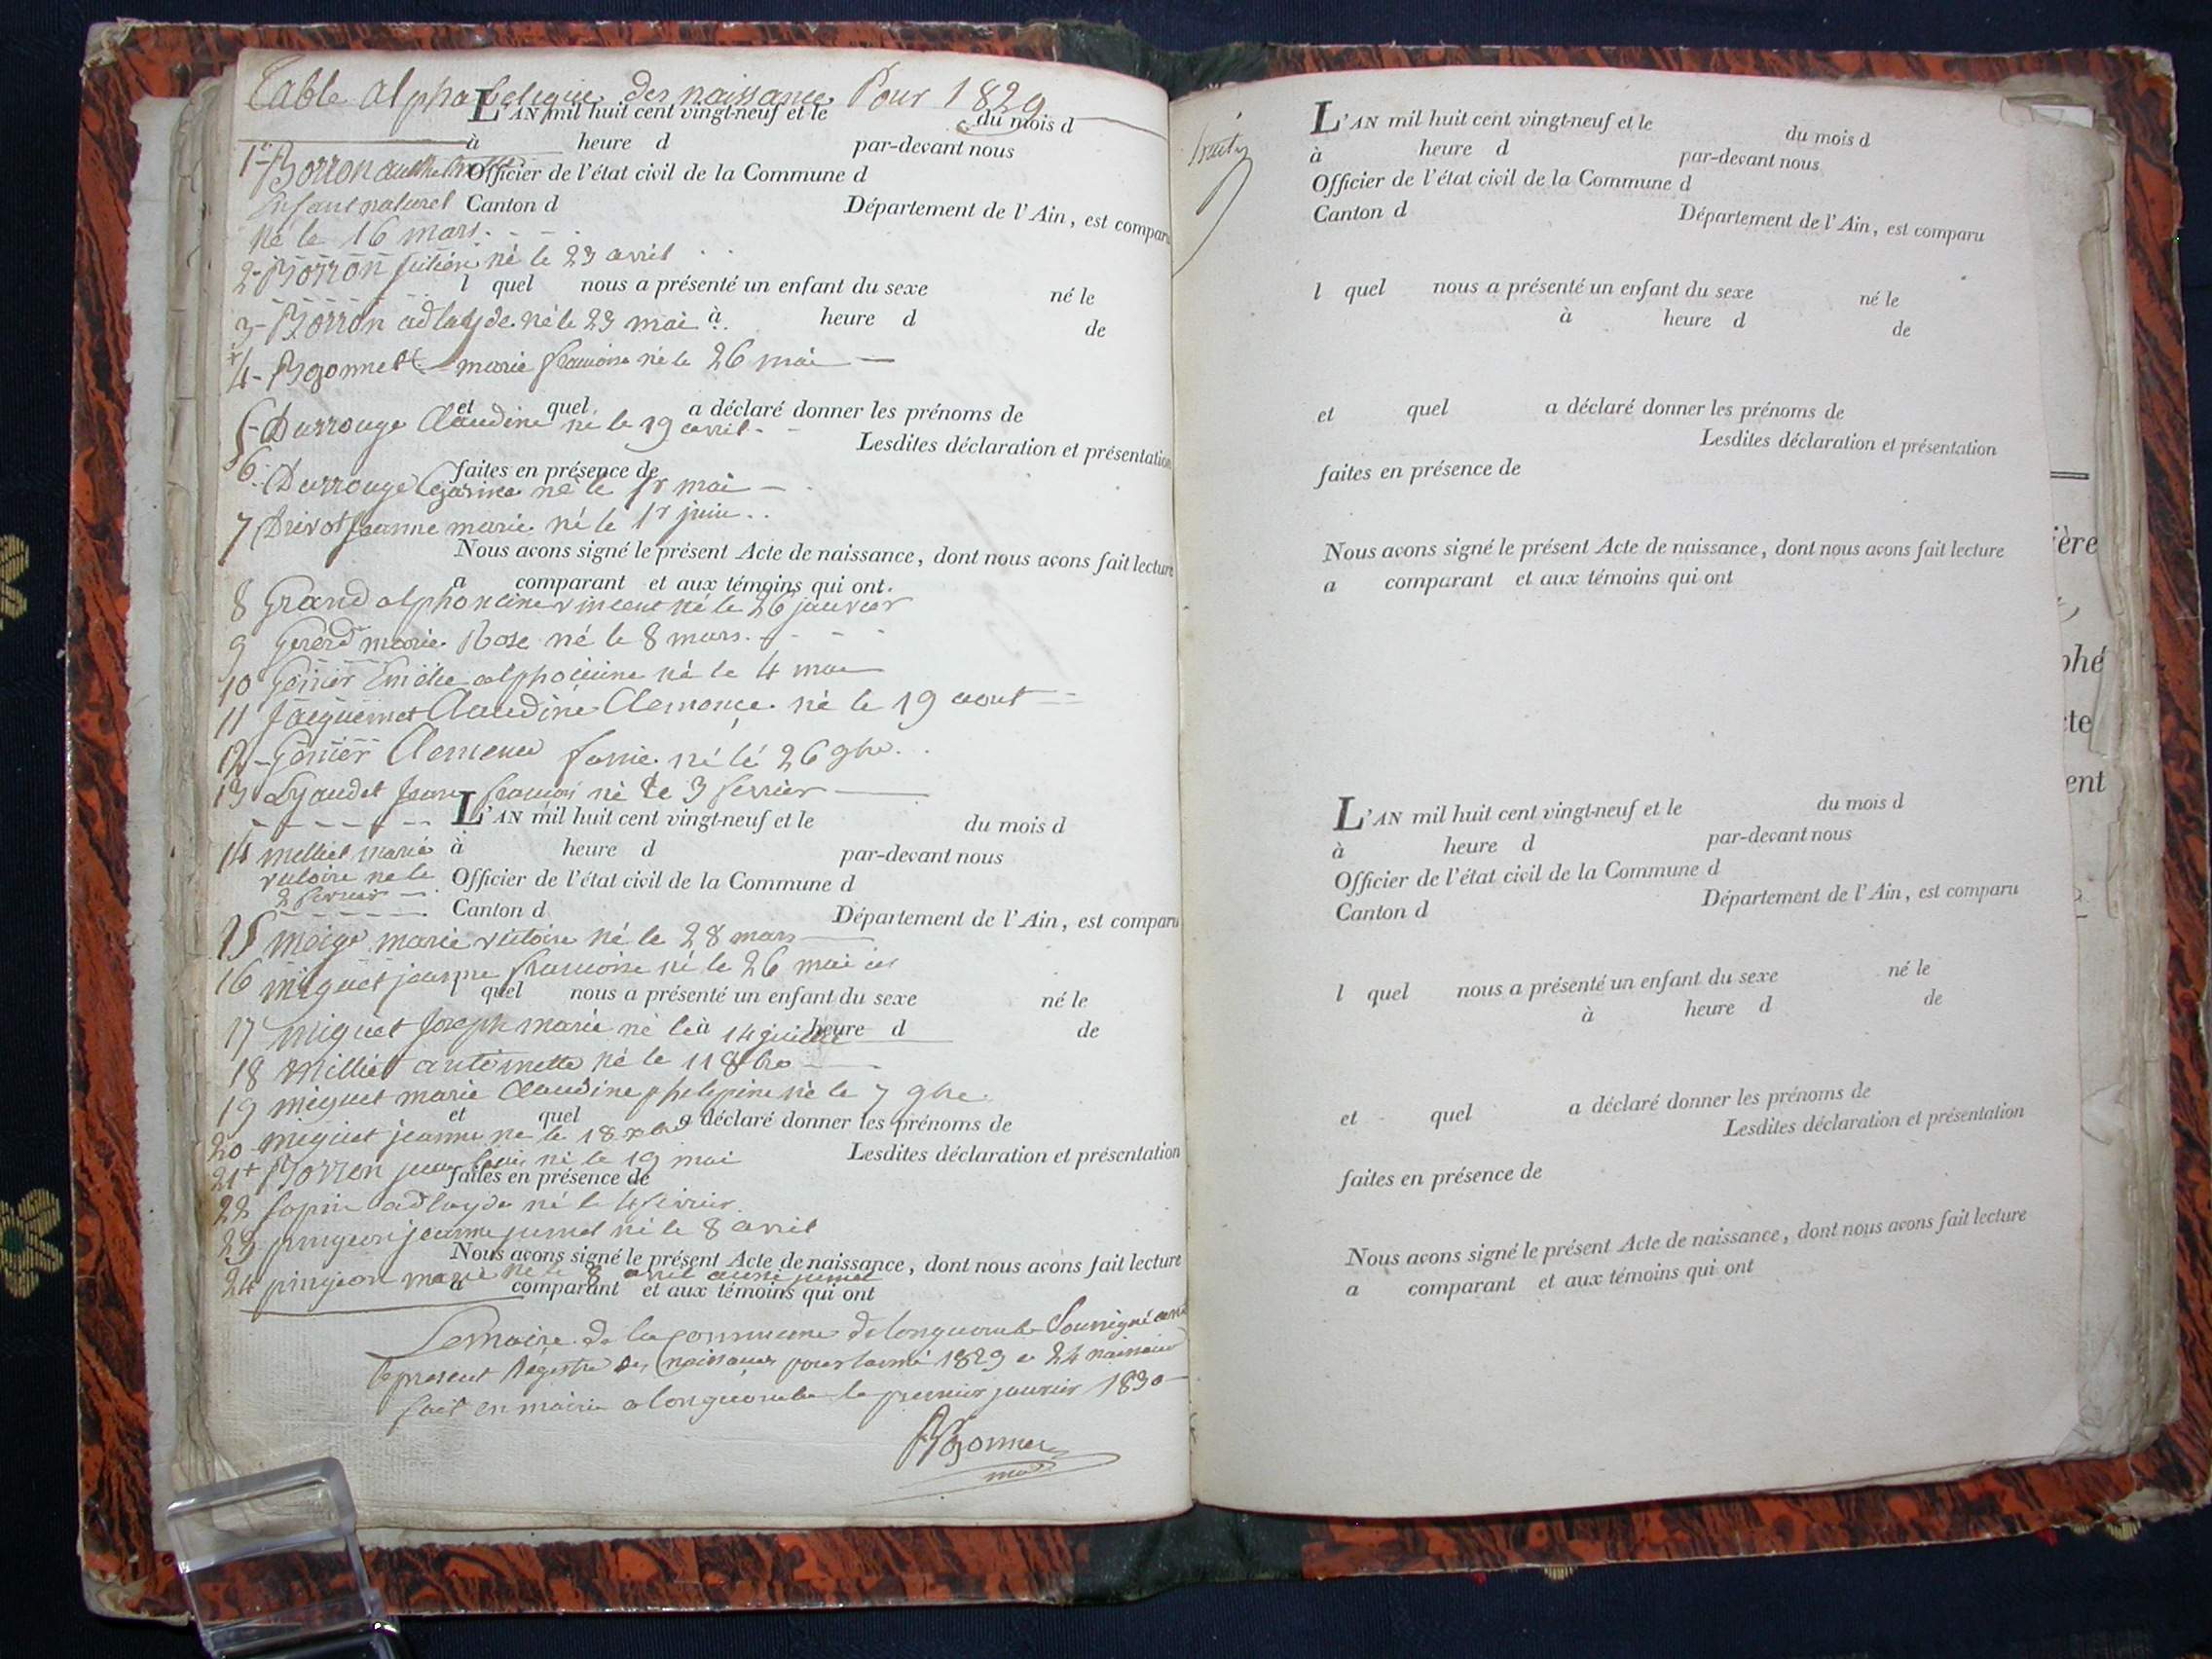 Table alphabetique des naissances Pour 1829
L'AN mil huit cent vingt-neuf et le du mois d
à heure d par-devant nous
1- Borron
Officier de l'état civil de la Commune d
Enfant naturel
Canton d Département de l'Ain, est comparu
né le 16 mars.
2- Borron né le 23 avril
l quel nous a présenté un enfant du sexe né le
3- Borron adlayde né le 23 mai
à heure d de
4- Bozonnet marie francoise né le 26 mai
et quel a déclaré donner les prénoms de
5- Durrouge Claudine né le 19 avril
Lesdites déclaration et présentation
faites en présence de
6. Durrouge né le 1r mai
7 Drivot jeanne marie né le 1r juin
Nous avons signé le présent Acte de naissance, dont nous avons fait lecture
a comparant et aux témoins qui ont.
8 Grand alphoncine vincent né le 26 janvier
9 Gererd marie Rose né le 8 mars
10 Genier Emelie alphoncine né le 4 mai
11 Jacquemet Claudine Clemonce né le 19 aout
12- Genier né le 26 9bre
13 Lyaudet francois né le 3 fevrier
L'AN mil huit cent vingt-neuf et le du mois d
14 Milliet marie
à heure d par-devant nous
victoire né le
Officier de l'état civil de la Commune d
2 fevrier
Canton d Département de l'Ain, est comparu
15 marie victoire né le 28 mars
16 miguet jeanne francoise né le 26 mai
l quel nous a présenté un enfant du sexe né le
17 miguet Joseph marie né le 14 juillet
à heure d de
18 Milliet antoinette né le 11 8bre
19 miguet marie Claudine phelepine né le 7 9bre
et quel a déclaré donner les prénoms de
20 miguet jeanne né le 18 xbre
Lesdites déclaration et présentation
21+ Borron jean louis né le 19 mai
faites en présence de
22 adlayde né le 4 fevrier
23 pingeon jeanne jumel né le 8 avril
Nous avons signé le présent Acte de naissance, dont nous avons fait lecture
24 pingeon marie né le 8 avril aussi jumel
a comparant et aux témoins qui ont
Le maire de la commune de longecombe Soussigné
le present Registre des naissances pour lanné 1829 a 24 naissances
fait en mairie a longecombe le premier janvier 1830
Bozonnet
L'AN mil huit cent vingt-neuf et le du mois d
à heure d par-devant nous
Officier de l'état civil de la Commune d
Canton d Département de l'Ain, est comparu
l quel nous a présenté un enfant du sexe né le
à heure d de
et quel a déclaré donner les prénoms de
Lesdites déclaration et présentation
faites en présence de
Nous avons signé le présent Acte de naissance, dont nous avons fait lecture
a comparant et aux témoins qui ont
L'AN mil huit cent vingt-neuf et le du mois d
à heure d par-devant nous
Officier de l'état civil de la Commune d
Canton d Département de l'Ain, est comparu
l quel nous a présenté un enfant du sexe né le
à heure d de
et quel a déclaré donner les prénoms de
Lesdites déclaration et présentation
faites en présence de
Nous avons signé le présent Acte de naissance, dont nous avons fait lecture
a comparant et aux témoins qui ont
ière
phé
cte
ent